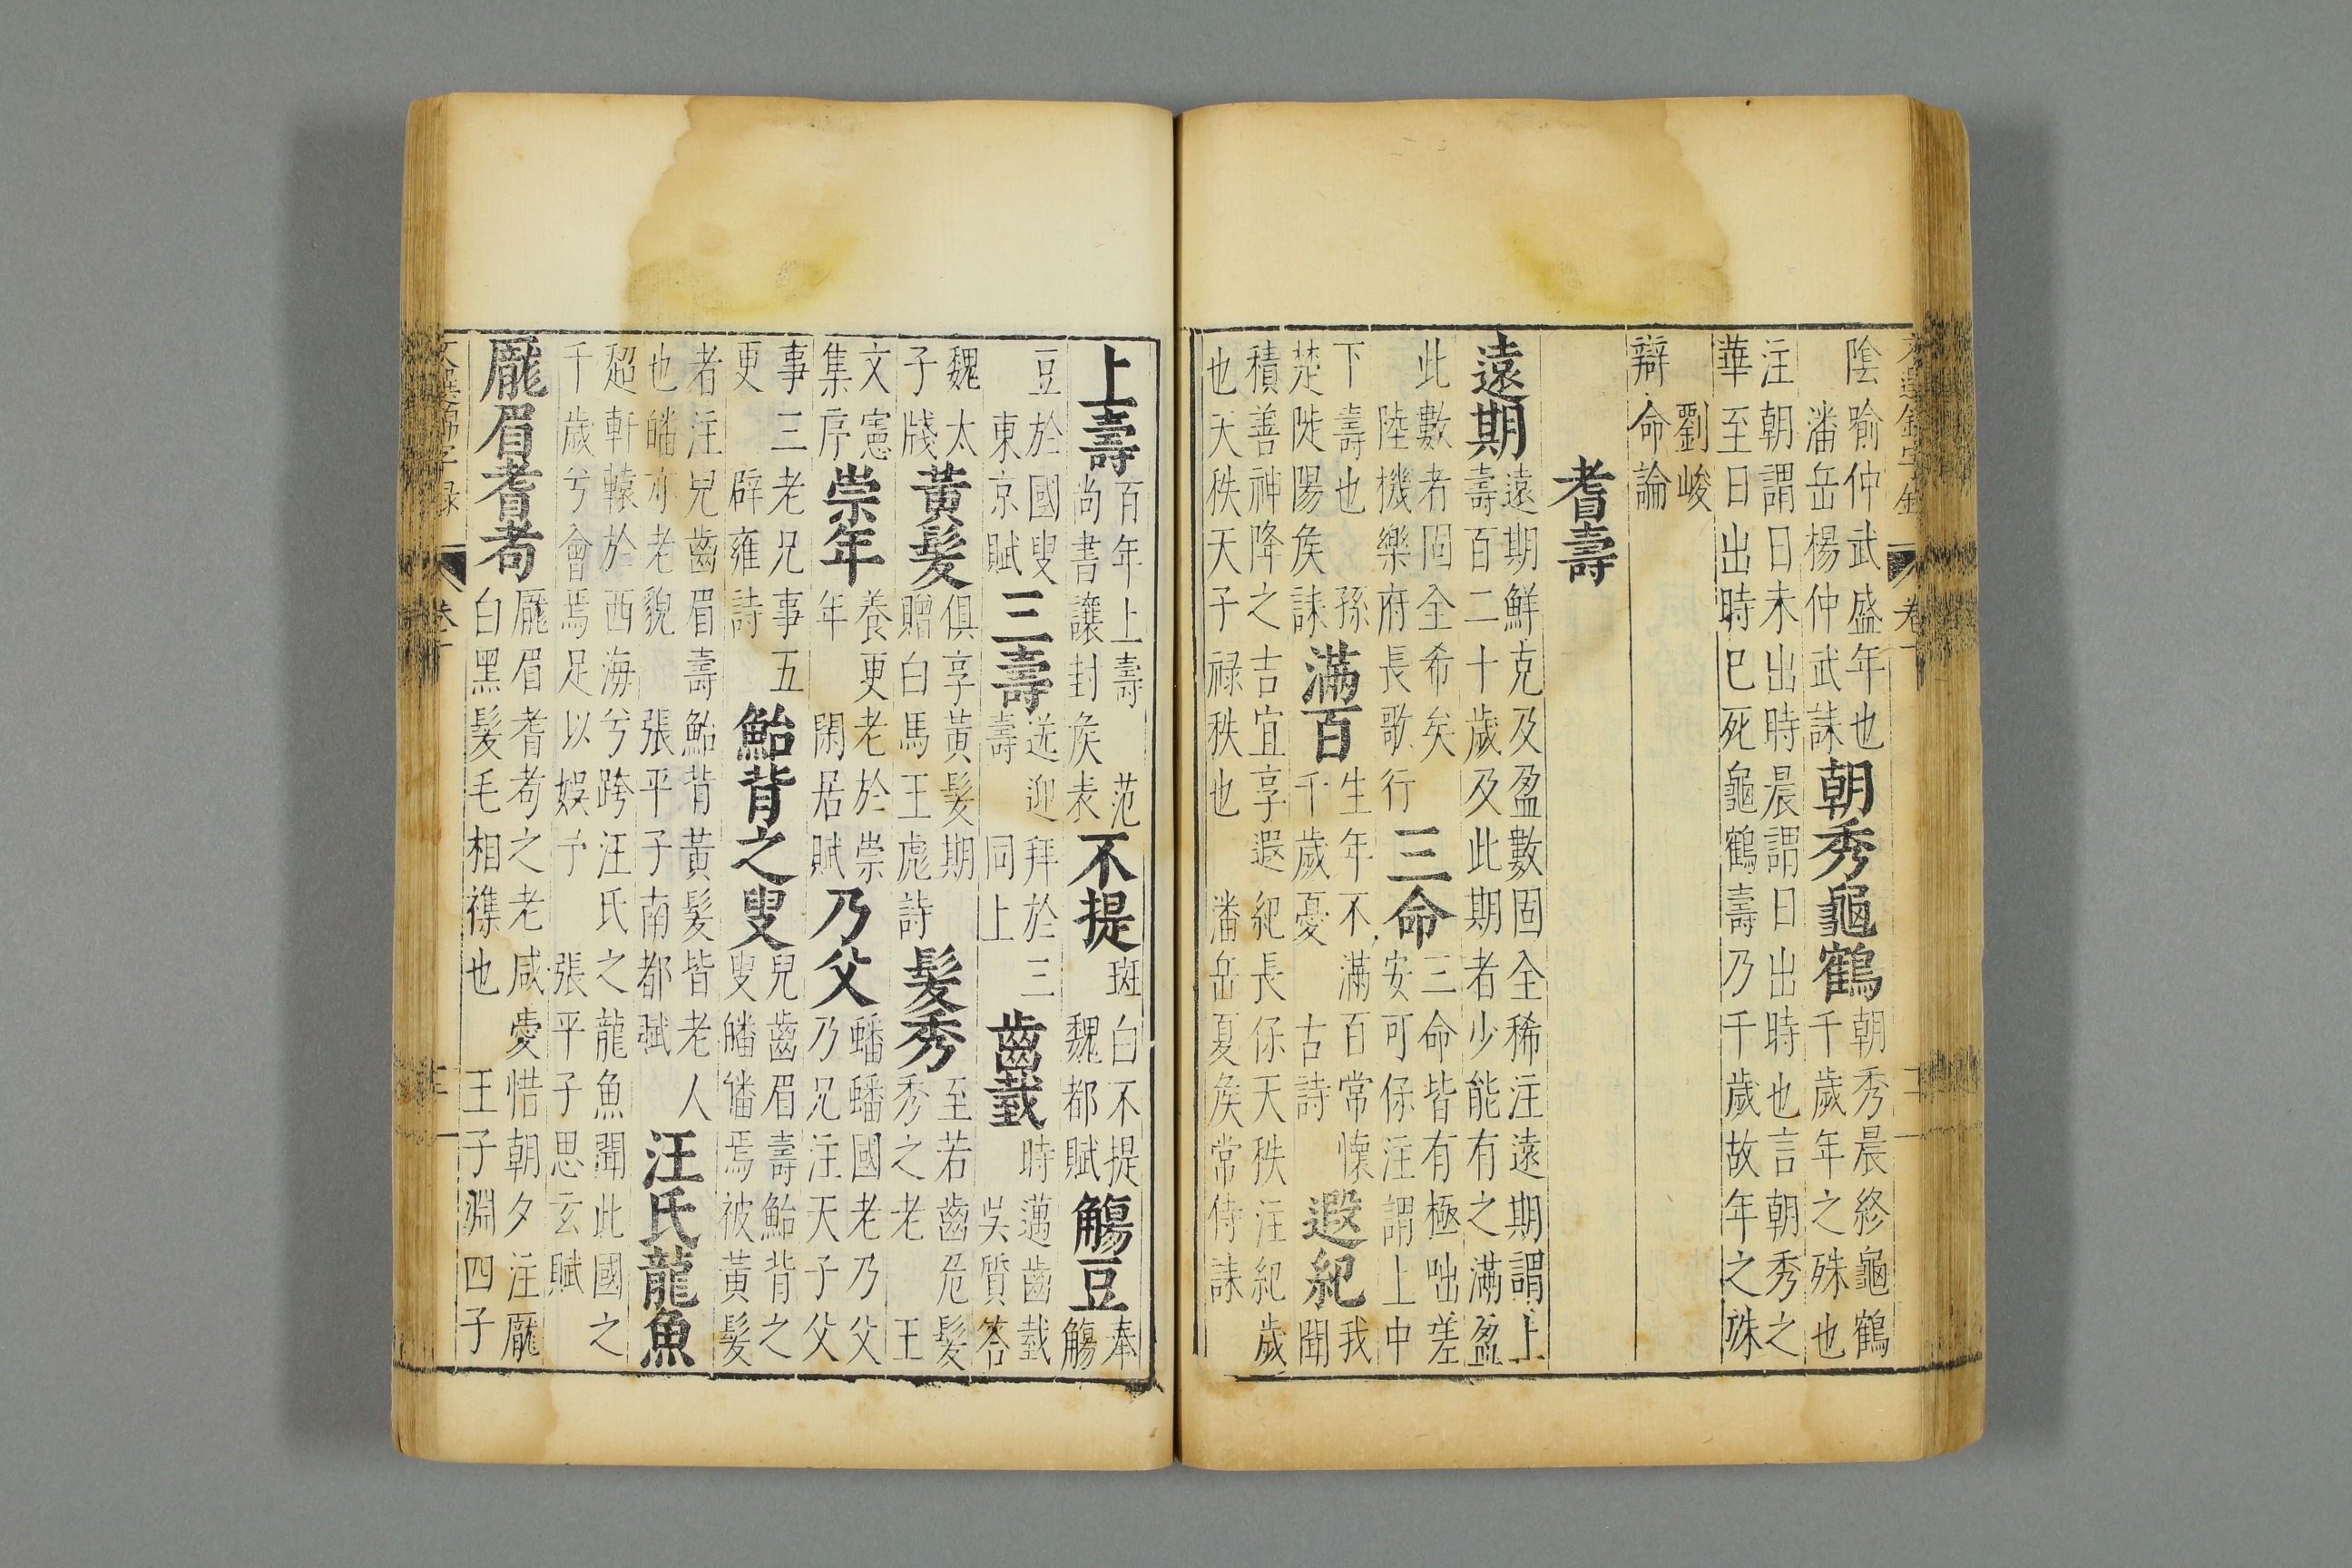 陰喻仲武盛年也潘岳楊仲武誄朝秀龜鶴朝秀晨終龜鶴千歲年之殊也
注朝謂日未出時晨謂日出時也言朝秀之華至日出時已死龜鶴壽乃千歲故年之殊
劉峻辯命論
耆壽
遠期遠期鮮克及盈數固全稀注遠期謂上壽百二十歲及此期者少能有之滿盈
此數者固全希矣陸機樂府長歌行三命三命皆有極咄嗟安可保注謂上中
下壽也 孫楚陟陽矦誄滿百生年不滿百常懷千歲憂 古詩遐紀我聞
積善神降之吉宜享遐紀長保天秩注紀歲也天秩天子祿秩也 潘岳夏矦常侍誄
上壽百年上壽 范尚書讓封矦表不提斑白不提魏都賦觴豆奉觴
豆於國叟東京賦三壽送迎拜於三壽 同上齒臷時邁齒臷吳質答
魏太子牋黃髮俱享黃髮期贈白馬王彪詩髮秀至若齒危髮秀之老 王
文憲集序崇年養更老於崇年 閑居賦乃父皤皤國老乃父乃兄注天子父
事三老兄事五更 辟雍詩鮐背之叟兒齒眉壽鮐背之叟皤皤焉被黃髮
者注兒齒眉壽鮐背黃髮皆老人也皤亦老貌 張平子南都賦汪氏龍魚
超軒轅於西海兮跨汪氏之龍魚聞此國之千歲兮曾焉足以娛予 張平子思玄賦
厖眉耆耇厖眉耆耇之老咸愛惜朝夕注厖白黑髮毛相襍也 王子淵四子